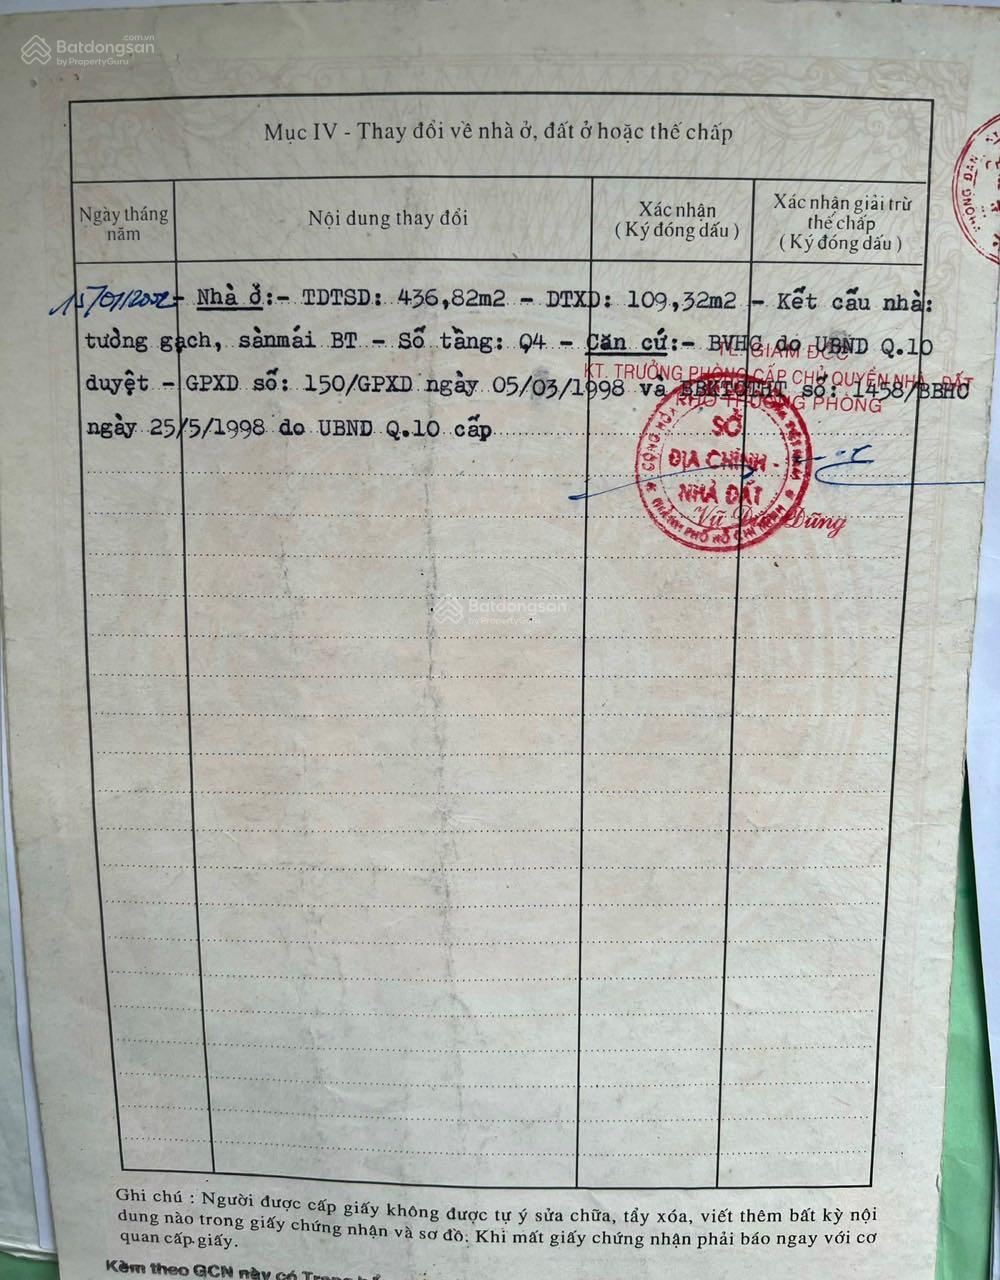 Batdongsan
.com.vn
by PropertyGuru
Mục IV - Thay đổi về nhà ở, đất ở hoặc thế chấp
Ngày tháng
năm
Nội dung thay đổi
Xác nhận
( Ký đóng dấu )
Xác nhận giải trừ
thế chấp
( Ký đóng dấu )
15/01/2002 - Nhà ở:- TDTSD: 436,82m2 - DTXD: 109,32m2 - Kết cấu nhà:
tường gạch, sànmái BT - Số tầng: 04 - Căn cứ:- BVHC do UBND Q.10
duyệt - GPXD số: 150/GPXD ngày 05/03/1998 và BBKTCTHT số: 1458/BBHC
ngày 25/5/1998 do UBND Q.10 cấp
TL. GIÁM ĐỐC
KT. TRƯỞNG PHÒNG CẤP CHỦ QUYỀN NHÀ, ĐẤT
PHÓ TRƯỞNG PHÒNG
SỞ
ĐỊA CHÍNH -
NHÀ ĐẤT
THÀNH PHỐ HỒ CHÍ MINH
Dũng
Batdongsan
by PropertyGuru
Ghi chú : Người được cấp giấy không được tự ý sửa chữa, tẩy xóa, viết thêm bất kỳ nội
dung nào trong giấy chứng nhận và sơ đồ. Khi mất giấy chứng nhận phải báo ngay với cơ
quan cấp giấy.
Kèm theo GCN này có Trang